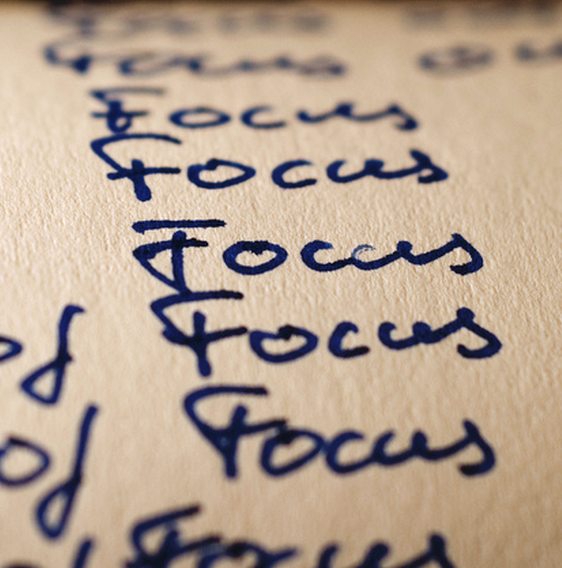 Focus
Focus
Focus
Focus
of Focus
of Focus
Focus